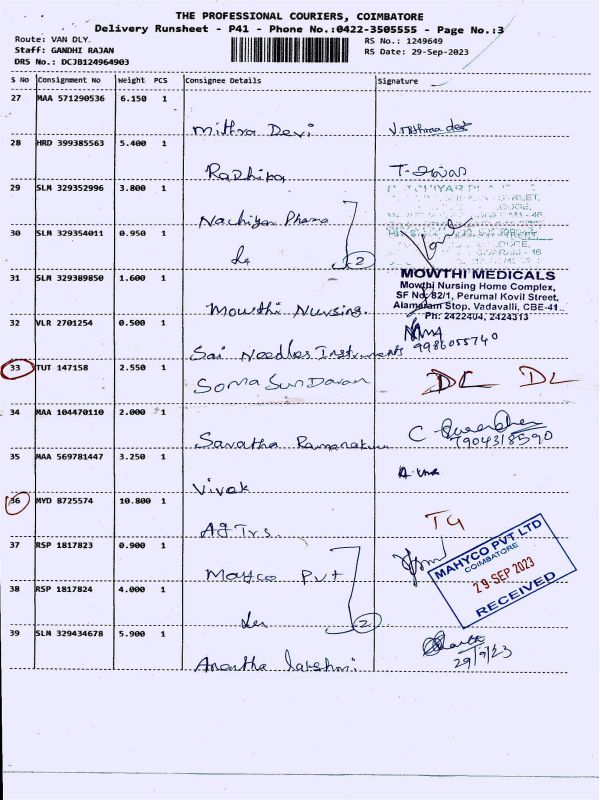 THE PROFESSIONAL COURIERS, COIMBATORE
Delivery Runsheet - P41 - Phone No.:0422-3505555 - Page No.:3
Route: VAN DLY.
RS No.: 1249649
Staff: GANDHI RAJAN
RS Date: 29-Sep-2023
DRS No.: DCJB124964903
S No Consignment No Weight PCS Consignee Details Signature
27 MAA 571290536 6.150 1
Mithra Devi
28 HRD 399385563 5.400 1
Radhika
29 SLM 329352996 3.800 1
Nachiyar Pharma
30 SLM 329354011 0.950 1
2
31 SLM 329389850 1.600 1
MOWTHI MEDICALS
Mowthi Nursing Home Complex,
SF No. 82/1, Perumal Kovil Street,
Alamaram Stop, Vadavalli, CBE-41.
Ph: 2422404, 2424313
Mowthi Nursing.
32 VLR 2701254 0.500 1
Sai Needles Instruments
33 TUT 147158 2.550 1
Soma Sundaram
DL DL
34 MAA 104470110 2.000 1
7904318590
35 MAA 569781447 3.250 1
Vivek
36 MYD 8725574 10.800 1
AG Trs.
37 RSP 1817823 0.900 1
MAHYCO PVT LTD
COIMBATORE
29 SEP 2023
RECEIVED
Mayco Pvt
38 RSP 1817824 4.000 1
2
39 SLM 329434678 5.900 1
29/9/23
Anantha lakshmi